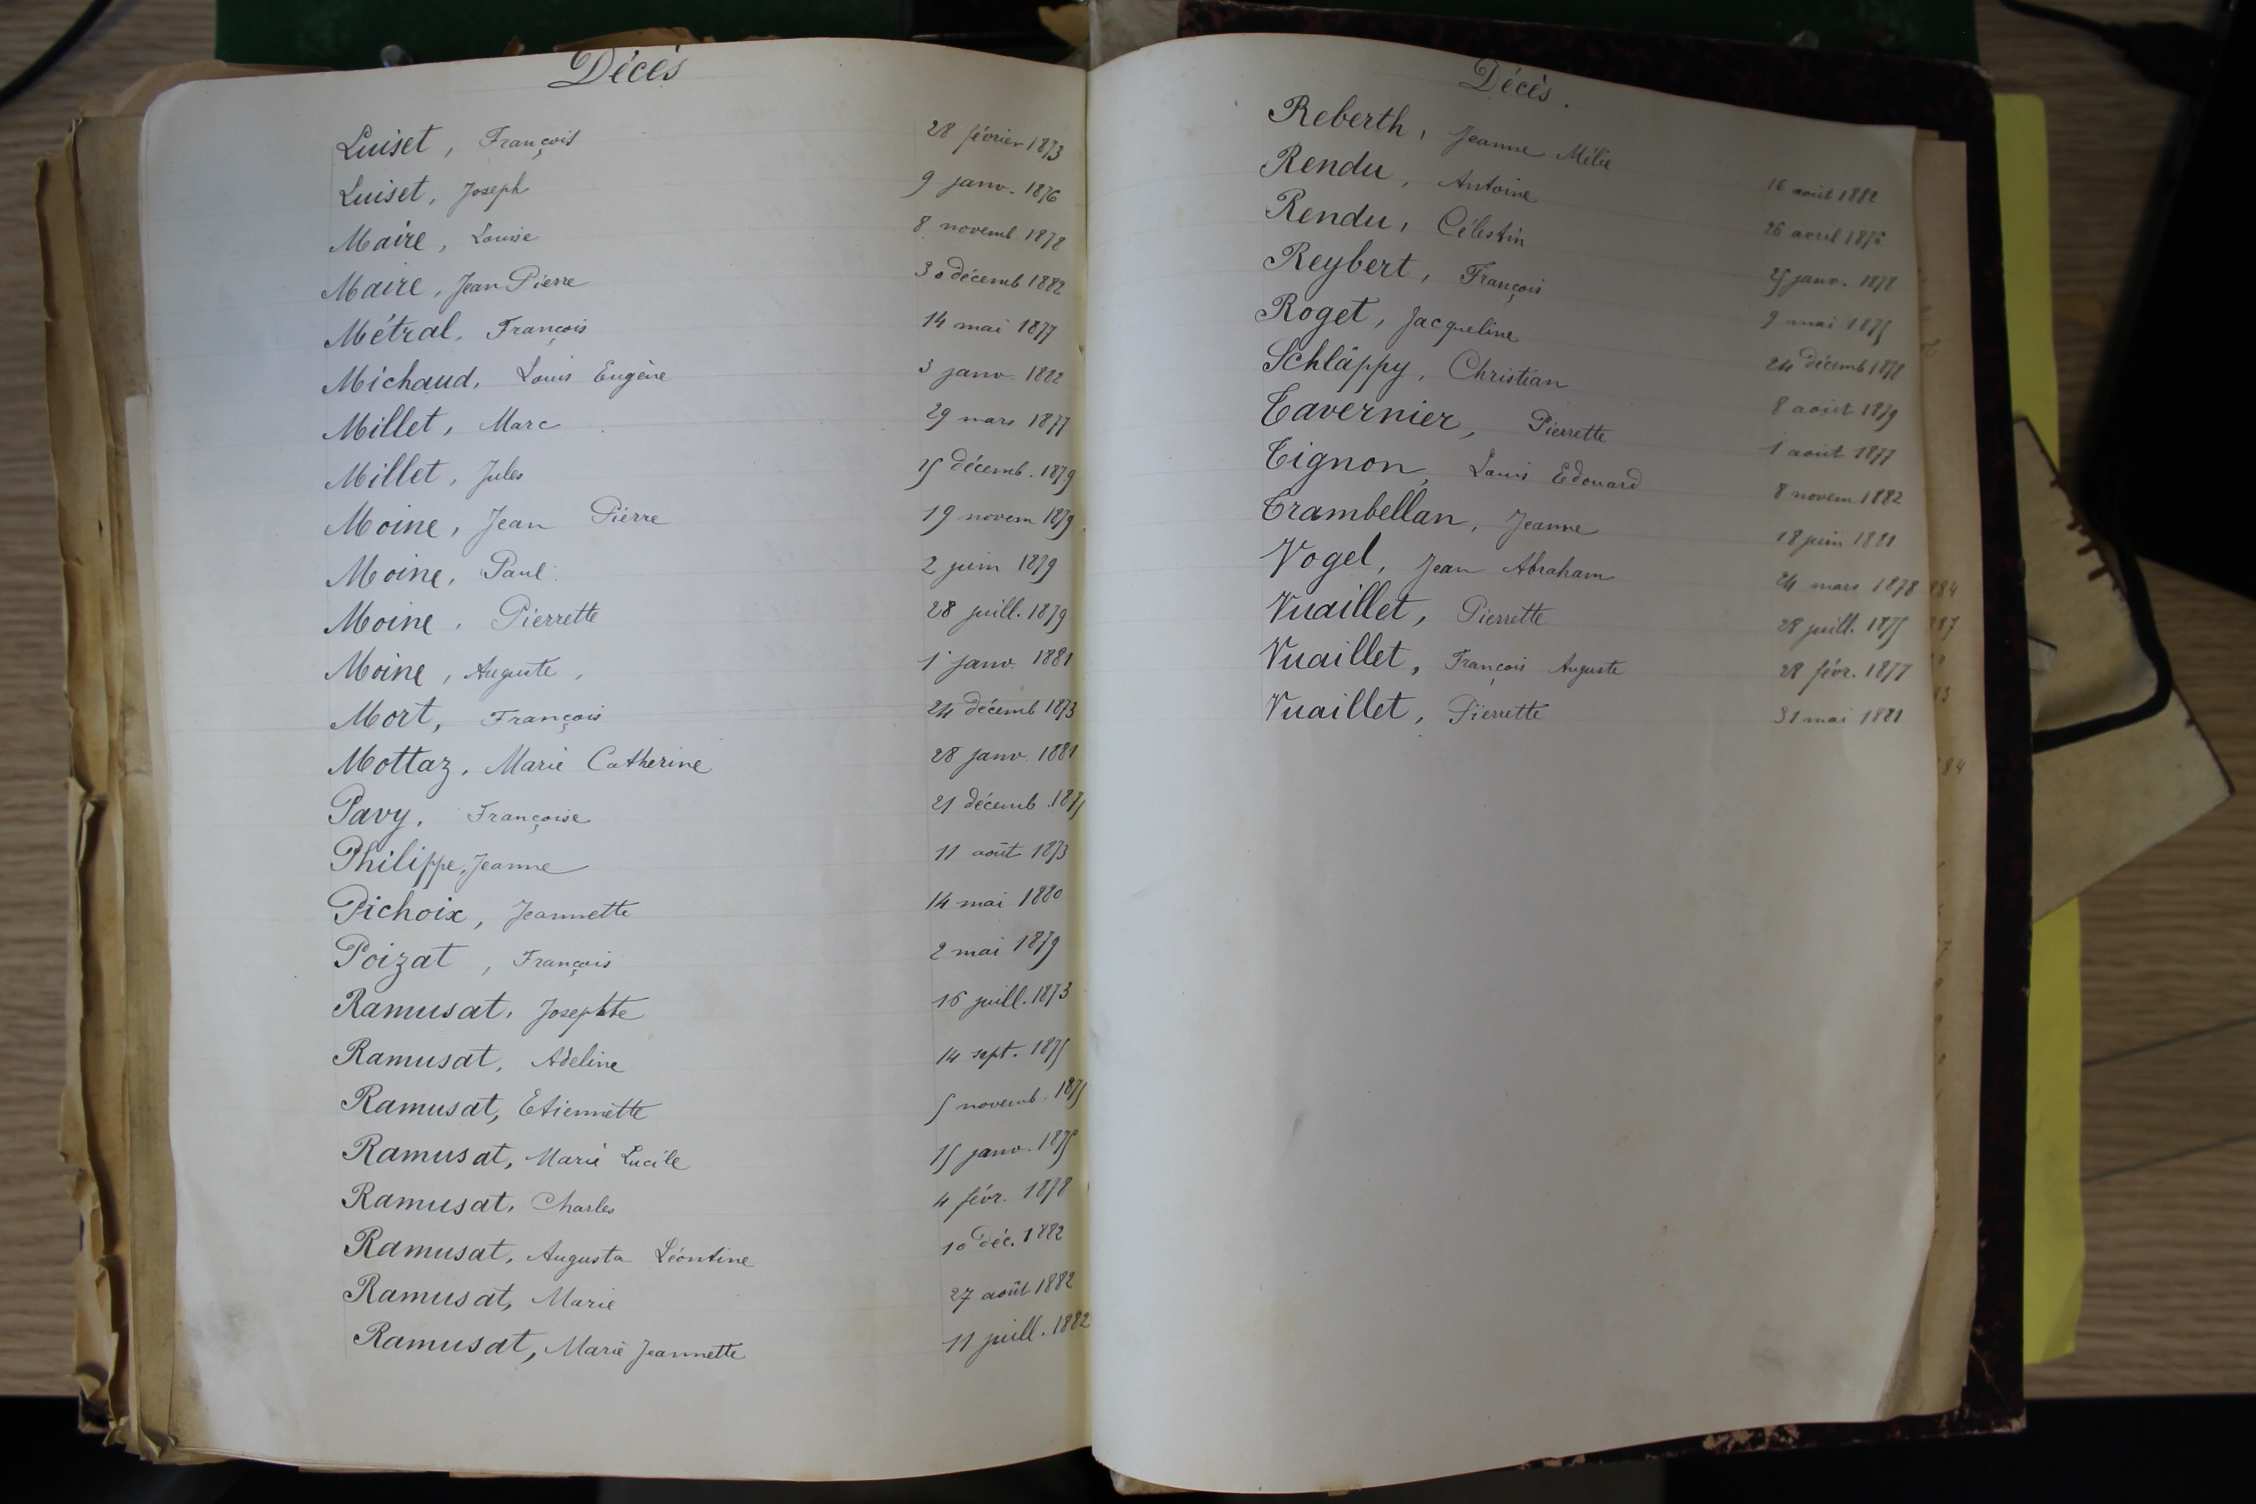 Décès
Luiset, François 28 février 1873
Luiset, Joseph 9 janv. 1876
Maire, Louise 8 novemb 1878
Maire, Jean Pierre 30 décemb 1882
Métral, François 14 mai 1877
Michaud, Louis Eugène 3 janv. 1882
Millet, Marc 29 mars 1877
Millet, Jules 15 décemb. 1879
Moine, Jean Pierre 19 novem 1879
Moine, Paul 2 juin 1879
Moine, Pierrette 28 juill. 1879
Moine, Auguste, 1 janv. 1881
Mort, François 24 décemb 1873
Mottaz, Marie Catherine 28 janv. 1881
Pavy, Françoise 21 décemb. 1875
Philippe, Jeanne 11 août 1873
Pichoix, Jeannette 14 mai 1880
Poizat, François 2 mai 1879
Ramusat, Josephte 16 juill. 1873
Ramusat, Adeline 14 sept. 1875
Ramusat, Etiennette 5 novemb. 1875
Ramusat, Marie Lucile 15 janv. 1875
Ramusat, Charles 4 févr. 1878
Ramusat, Augusta Léontine 10 déc. 1882
Ramusat, Marie 27 août 1882
Ramusat, Marie Jeannette 11 juill. 1882
Décès.
Reberth, Jeanne Mélie 16 août 1882
Rendu, Antoine 26 avril
Rendu, Célestin 25 janv. 1878
Reybert, François 9 mai 1875
Roget, Jacqueline 24 décemb 1878
Schläppy, Christian 8 août 1879
Tavernier, Pierrette 1 août 1877
Tignon, Louis Edouard 8 novem 1882
Trambellan, Jeanne 18 juin 1881
Vogel, Jean Abraham 24 mars 1878
Vuaillet, Pierrette 28 juill. 1875
Vuaillet, François Auguste 28 févr. 1877
Vuaillet, Pierrette 31 mai 1881